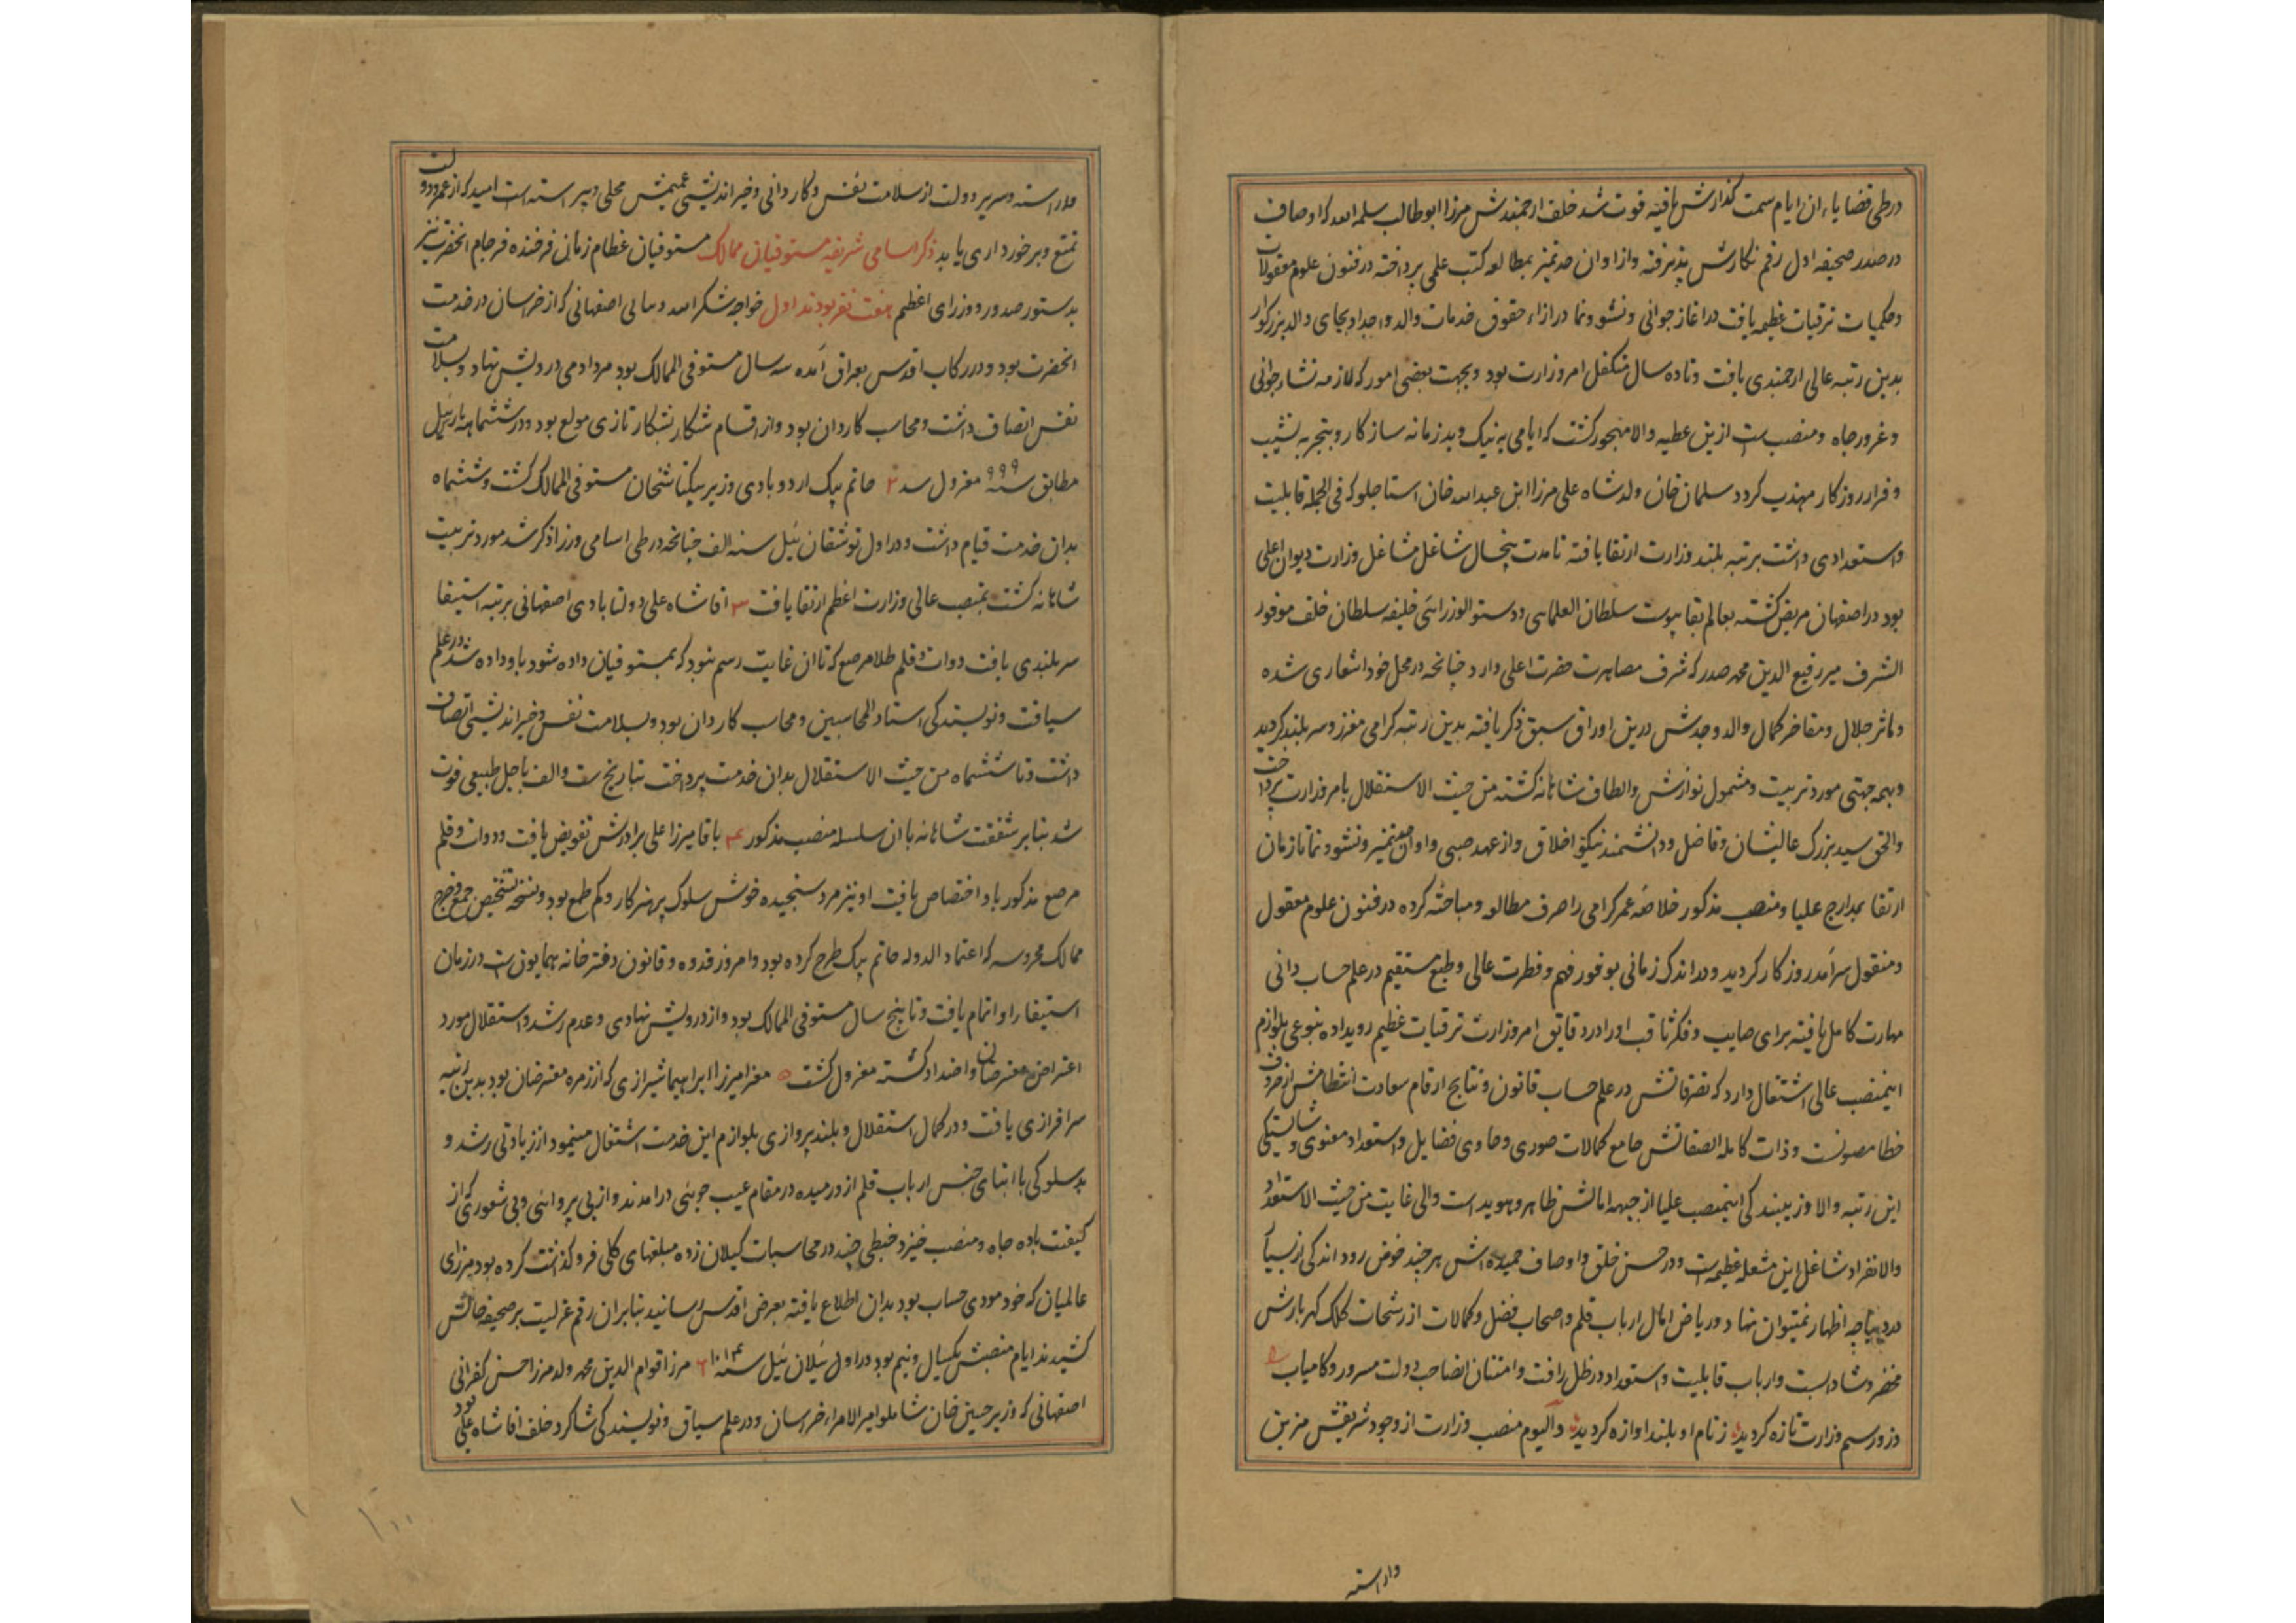 در طی قضایاء ان ایام سمت گذارش یافته فوت شد خلف ارجمندش مرزا ابوطالب سلمه الله که اوصاف
در صدر صحیفه اول رقم نگارش پذیرفته و از اوان حد تمیز بمطالعه کتب علمی پرداخته در فنون علوم معقولات
و حکمیات ترقیات عظیمه یافت در اغاز جوانی و نشو و نما در ازاء حقوق خدمات والد و اجداد بجای والد بزرکوار
بدین رتبه عالی ارجمندی یافت و تا ده سال متکفل امر وزارت بود و بجهت بعضی امور که لازمه نشاء جوانی
و غرور جاه و منصب است ازین عطیه والا مهجور کشت که ایامی به نیک و بد زمانه سازکار و بتجربه نشیب
و فراز روزکار مهذب کردد سلمان خان ولد شاه علی مرزا ابن عبدالله خان استاجلو که فی الجمله قابلیت
و استعدادی داشت برتبه بلند وزارت ارتقا یافته تا مدت پنجسال شاغل مشاغل وزارت دیوان اعلی
بود در اصفهان مریض کشته بعالم بقا پیوست سلطان العلمایی و دستور الوزرائی خلیفه سلطان خلف موفور
الشرف میر رفیع الدین محمد صدر که شرف مصاهرت حضرت اعلی دارد چنانچه در محل خود اشعاری شده
و ماثر جلال و مفاخر کمال والد و جدش درین اوراق سبق ذکر یافته بدین رتبه کرامی معزز و سربلند کردید
و بهمه جهتی مورد تربیت و مشمول نوازش و الطاف شاهانه کشته من حیث الاستقلال بامر وزارت پرداخت
والحق سید بزرک عالیشان و فاضل و دانشمند نیکو اخلاق و از عهد صبی و اوان تمیز و نشو و نما تا زمان
ارتقا بمدارج علیا و منصب مذکور خلاصه عمر کرامی را صرف مطالعه و مباحثه کرده در فنون علوم معقول
و منقول سرآمد روزکار کردید و در اندک زمانی بوفور فهم و فطرت عالی و طبع مستقیم در علم حساب دانی
مهارت کامل یافته برای صایب و فکر ثاقب او را در دقایق امر وزارت ترقیات عظیم رویداده بنوعی بلوازم
اینمنصب عالی اشتغال دارد که تصرفاتش در علم حساب قانون و نتایج ارقام سعادت انتظامش از حروف
خطا مصونست و ذات کامله الصفاتش جامع کمالات صوری و حاوی فضایل و استعداد معنوی و شایستکی
این رتبه والا و زیبندکی اینمنصب علیا از جبهه امالش ظاهر و هویداست و الی غایت من حیث الاستعداد
والانفراد شاغل این مشغله عظیمه است و در حسن خلق و اوصاف حمیده اش هر چند خوض رود اندکی از بسیار
در دیباچه اظهار نمیتوان نهاد و ریاض امال ارباب قلم و اصحاب فضل و کمالات از رشحات کلک کهربارش
مخضر و شادابست و ارباب قابلیت و استعداد در ظل رافت و امتنان انصاحب دولت مسرور و کامیاب
وزو رسم وزارت تازه کردید ز نام او بلند اوازه کردید والیوم منصب وزارت از وجود شریفش مزین
واراسته
واراسته و سریر دولت از سلامت نفس و کاردانی و خیراندیشی عمیمش محلی و پیراسته است امید که از عمر و دولت
تمتع و برخورداری یابد ذکر اسامی شریفه مستوفیان ممالک مستوفیان عظام زمانی فرخنده فرجام انحضرت نیز
بدستور صدور و وزرای اعظم هفت نفر بودند اول خواجه شکرالله و سالی اصفهانی که از خراسان در خدمت
انحضرت بود و در رکاب اقدس بعراق آمده سه سال مستوفی الممالک بود مرد ادمی درویش نهاد و بسلامت
نفس اتصاف داشت و محاسب کاردان بود و از اقسام شکار بشکار تازی مولع بود و در ششماهه بارس ئیل
مطابق سنه ۹۹۹ معزول شد ۲ حاتم بیک اردوبادی وزیر بیکتاش خان مستوفی الممالک کشت و ششماه
بدان خدمت قیام داشت و در اول توشقان ئیل سنه الف چنانچه در طی اسامی وزرا ذکر شد مورد تربیت
شاهانه کشت بمنصب عالی وزارت اعظم ارتقا یافت ۳ اقا شاه علی دولتابادی اصفهانی برتبه استیفا
سربلندی یافت دوات و قلم طلا مرصع که تا ان غایت رسم نبود که بمستوفیان داده شود باو داده شد در علم
سیاقت و نویسندکی استاد المحاسبین و محاسب کاردان بود و بسلامت نفس و خیراندیشی اتصاف
داشت و تا ششماه من حیث الاستقلال بدان خدمت پرداخت بتاریخ ست والف باجل طبیعی فوت
شد بنابر شفقت شاهانه بان سلسله منصب مذکور ۴ باقا میرزا علی برادرش تفویض یافت و دوات و قلم
مرصع مذکور باو اختصاص یافت او نیز مرد سنجیده خوش سلوک پرهیزکار و کم طمع بود و نسخه تشخیص جمع و خرج
ممالک محروسه که اعتماد الدوله حاتم بیک طرح کرده بود و امروز قدوه و قانون دفترخانه همایونست در زمان
استیفاء او اتمام یافت و تا پنج سال مستوفی الممالک بود و از درویش نهادی و عدم رشد و استقلال مورد
اعتراض معترضان و اضداد کشته معزول کشت ۵ معز امیرزا ابراهیما شیرازی که از زمره معترضان بود بدین رتبه
سرافرازی یافت و در کمال استقلال و بلند پروازی بلوازم این خدمت اشتغال مینمود از زیادتی رشد و
بدسلوکی با ابنای جنس ارباب قلم ازو رمیده در مقام عیب جوئی درامدند و از بی پروائی و بی شعوری که از
کیفیت باده جاه و منصب خیزد خبطی چند در محاسبات کیلان زده مبلغهای کلی فروکذاشت کرده بود میرزای
عالمیان که خود مودی حساب بود بدان اطلاع یافته بعرض اقدس رسانید بنابران رقم عزلیت بر صحیفه حالش
کشیدند ایام منصبش یکسال و نیم بود در اول ئیلان ئیل سنه ۱۰۱۴ ۶ مرزا قوام الدین محمد ولد مرزا حسن کفرانی
اصفهانی که وزیر حسین خان شاملو امیر الامراء خراسان و در علم سیاق و نویسندکی شاکرد خلف اقا شاه علی بود